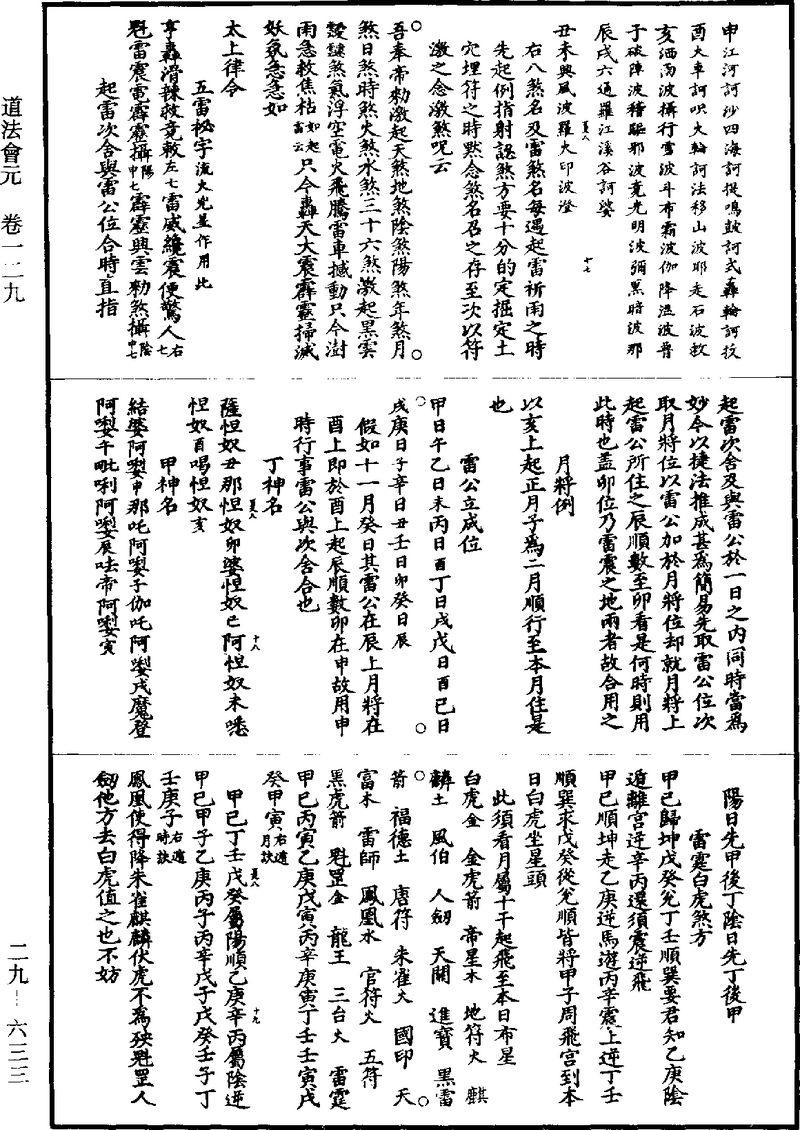 申江河訶沙四海訶提鳴鼓訶式轟輪訶抆
酉火車訶呎火輪訶法移山波耶走石波敕
亥緬兩波攝行雪波斗布霜波伽降溫波魯
子破陣波稽驅邪波竟光明波彌黑暗波那
辰戌六通羅江溪谷訶娑
丑未興風波羅火印波澄
右八煞名及雷煞名每遇起雷祈雨之時
先起例指射認煞方要十分的定掘定土
穴埋符之時默念煞名召之存至次以符
激之念激煞咒云
吾奉帝勑激起天煞地煞陰煞陽煞年煞月
煞日煞時煞火煞水煞三十六煞激起黑雲
靉靆煞氣浮空電火飛騰雷車撼動只今澍
雨急救焦枯如起雷云只今轟天大震霹靂掃滅
妖氛急急如
太上律令
五雷祕字流火光並作用此
亨轟滑辣救竟較左七雷威纔震便驚人右七
魁雷震電霹靂攝陽申七霹靂興雲勑煞攝陰申七
起雷次舍與雷公位合時直指
起雷次舍及與雷公於一日之內同時當為
妙今以捷法推成甚為簡易先取雷公位次
取月將位以雷公加於月將位却就月將上
起雷公所住之辰順數至卯看是何時則用
此時也蓋卯位乃雷震之地兩者故合用之
月將例
以亥上起正月子為二月順行至本月住是
也
雷公立成位
甲日午乙日未丙日酉丁日戌戊日酉巳日
戌庚日子辛日丑壬日卯癸日辰
假如十一月癸日其雷公在辰上月將在
酉上即於酉上起辰順數卯在申故用申
時行事雷公與次舍合也
丁神名
薩怛奴丑那怛奴卯婆怛奴巳阿怛奴未嚜
怛奴酉喝怛奴亥
甲神名
結婆阿㘑申那吒阿㘑子伽吒阿㘑戌魔登
阿㘑午毗唎阿㘑辰呿帝阿㘑寅
陽日先甲後丁陰日先丁後甲
雷霆白虎煞方
甲己歸坤戊癸兊丁壬順巽要君知乙庚陰
遁離宮逆辛丙還須震逆飛
甲己順坤走乙庚逆馬遊丙辛震上逆丁壬
順巽求戊癸從兊順皆將甲子周飛宮到本
日白虎坐星頭
此須看月屬十干起飛至本日布星
白虎金　金虎箭　帝星木　地符火　麒
麟土　風伯　人劒　天關　進寶　黑雷
箭　福德土　唐符　朱雀火　國印　天
富木　雷師　鳳凰水　官符火　五符
黑虎箭　魁罡金　龍王　三台火　雷霆
甲己丙寅乙庚戊寅丙辛庚寅丁壬壬寅戊
癸甲寅右遁月訣
甲己丁壬戊癸屬陽順乙庚辛丙屬陰逆
甲己甲子乙庚丙子丙辛戊子戊癸壬子丁
壬庚子右遁時訣
鳳凰使得降朱雀麒麟伏虎不為殃魁罡人
劒他方去白虎值之也不妨
道法會元　卷一二九
二九－六三三